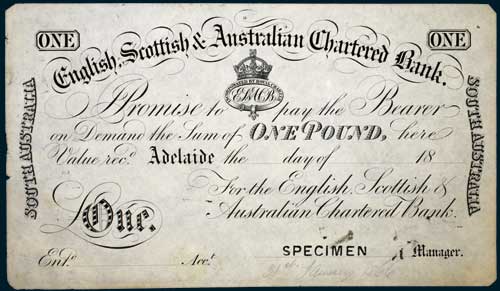 ONE
ONE
English, Scottish & Australian Chartered Bank.
SOUTH AUSTRALIA
SOUTH AUSTRALIA
INCORPORATED BY ROYAL CHARTER
I Promise to pay the Bearer
on Demand the Sum of ONE POUND, here
Value recd. Adelaide the day of 18
For the English, Scottish &
Australian Chartered Bank.
£ One.
SPECIMEN Manager.
Entd. Acct.